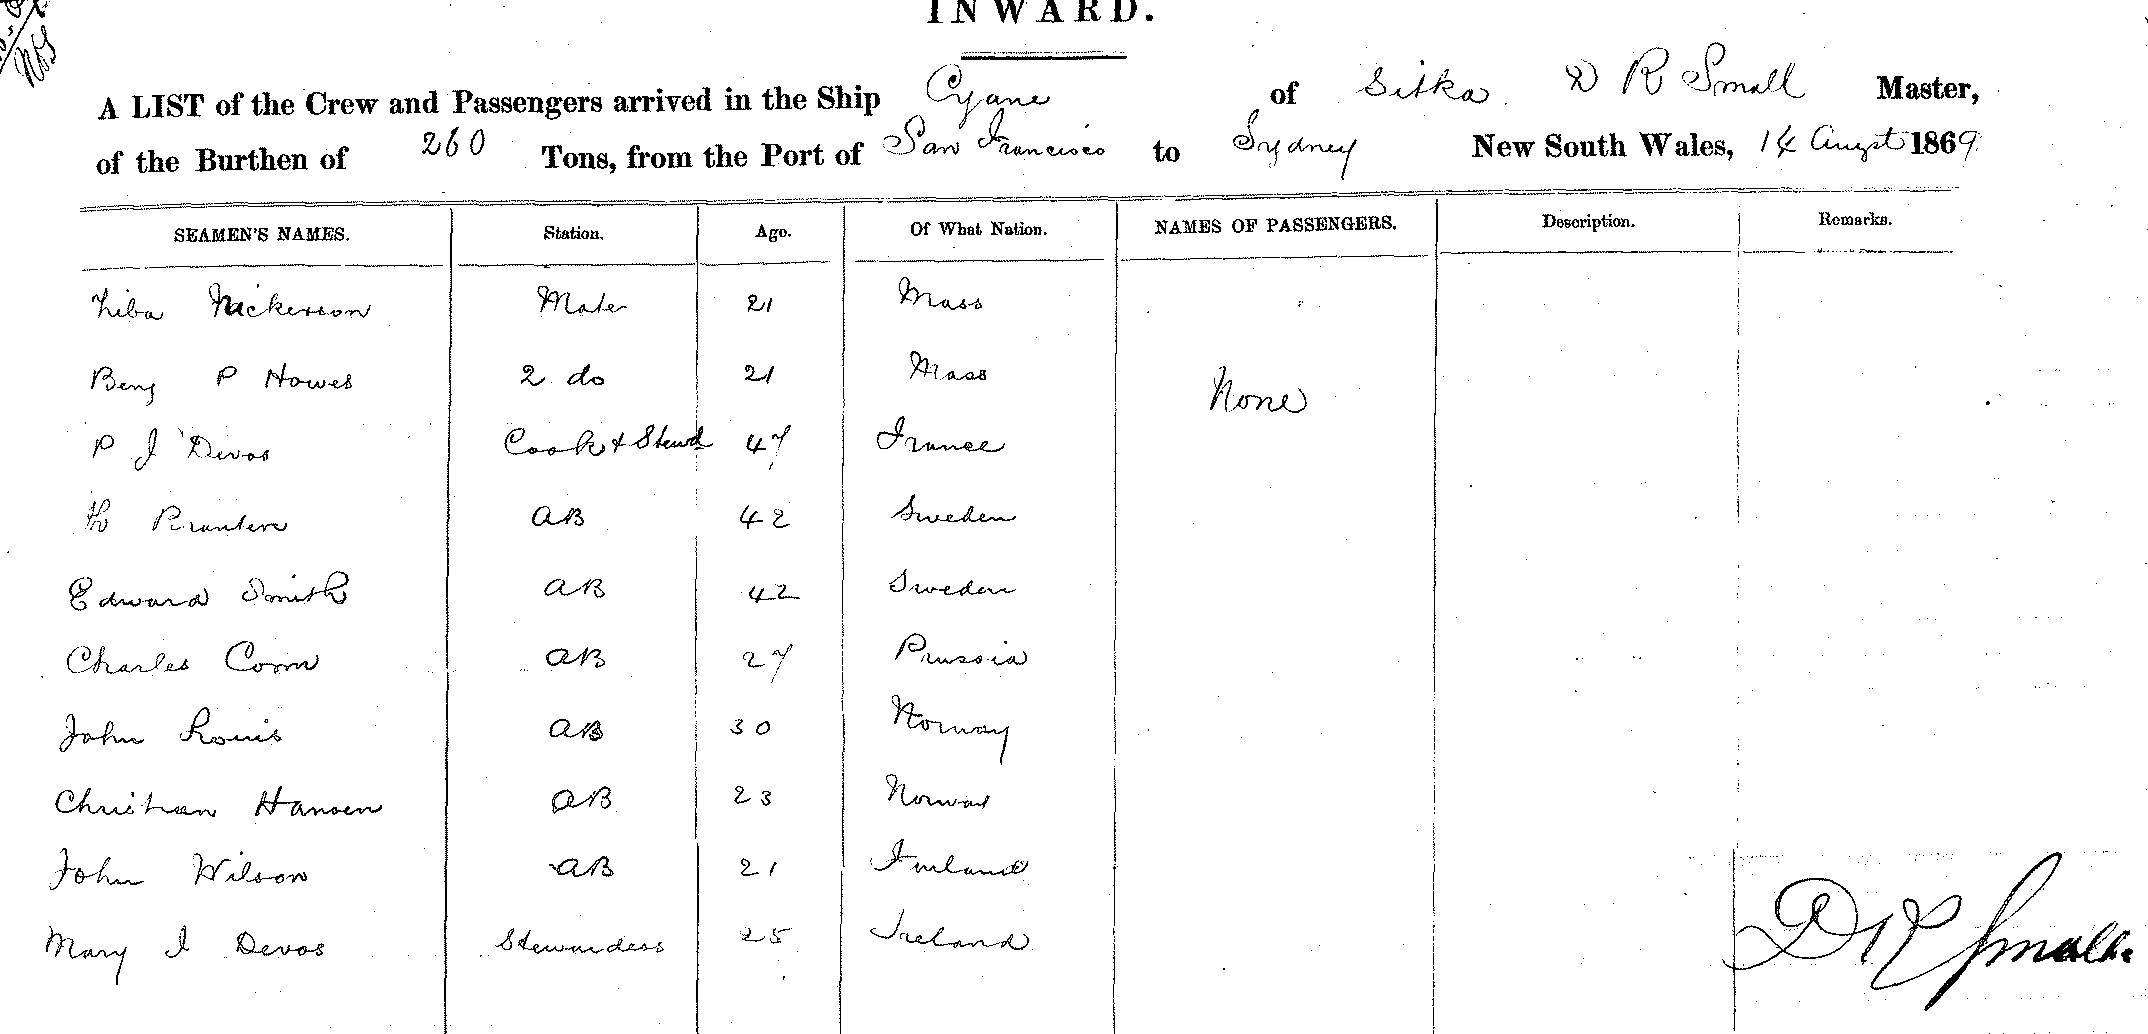 INWARD.
A LIST of the Crew and Passengers arrived in the Ship Cyane of Sitka D R Small Master,
of the Burthen of 260 Tons, from the Port of San Francisco to Sydney New South Wales, 14 Augst 1869
SEAMEN'S NAMES. Station. Age. Of What Nation. NAMES OF PASSENGERS. Description. Remarks.
Nickerson Mate 21 Mass
Benj P Howes 2 do 21 Mass
None
P J Devos Cook & Stewd 47 France
AB 42 Sweden
Edward Smith AB 42 Sweden
Charles Conn AB 27 Prussia
John Louis AB 30 Norway
Christian Hansen AB 23 Norway
John Wilson AB 21 Finland
Mary J Devos Stewardess 25 Ireland
D R Small